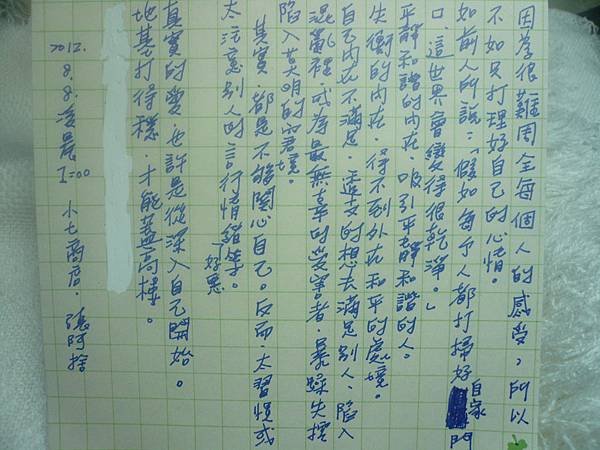 因為很難周全每個人的感受，所以
不如只打理好自己的心情。
如前人所說：「假如每个人都打掃好自家門
口，這世界會變得很乾淨。」
平靜和諧的內在，吸引平靜和諧的人。
失衡的內在，得不到外在和平的處境。
自己內在不滿足，透支的想去滿足別人、陷入
混亂裡，成為最無辜的受害者，暴躁失控
陷入莫明的窘境。
其實，都是不夠關心自己。反而太習慣或
太注意別人的言行情緒等。
「好惡
真實的愛，也許是從深入自己開始。
地基打得穩，才能蓋高樓。
2012.
8.8.凌晨1=00 小七商店.張阿拾